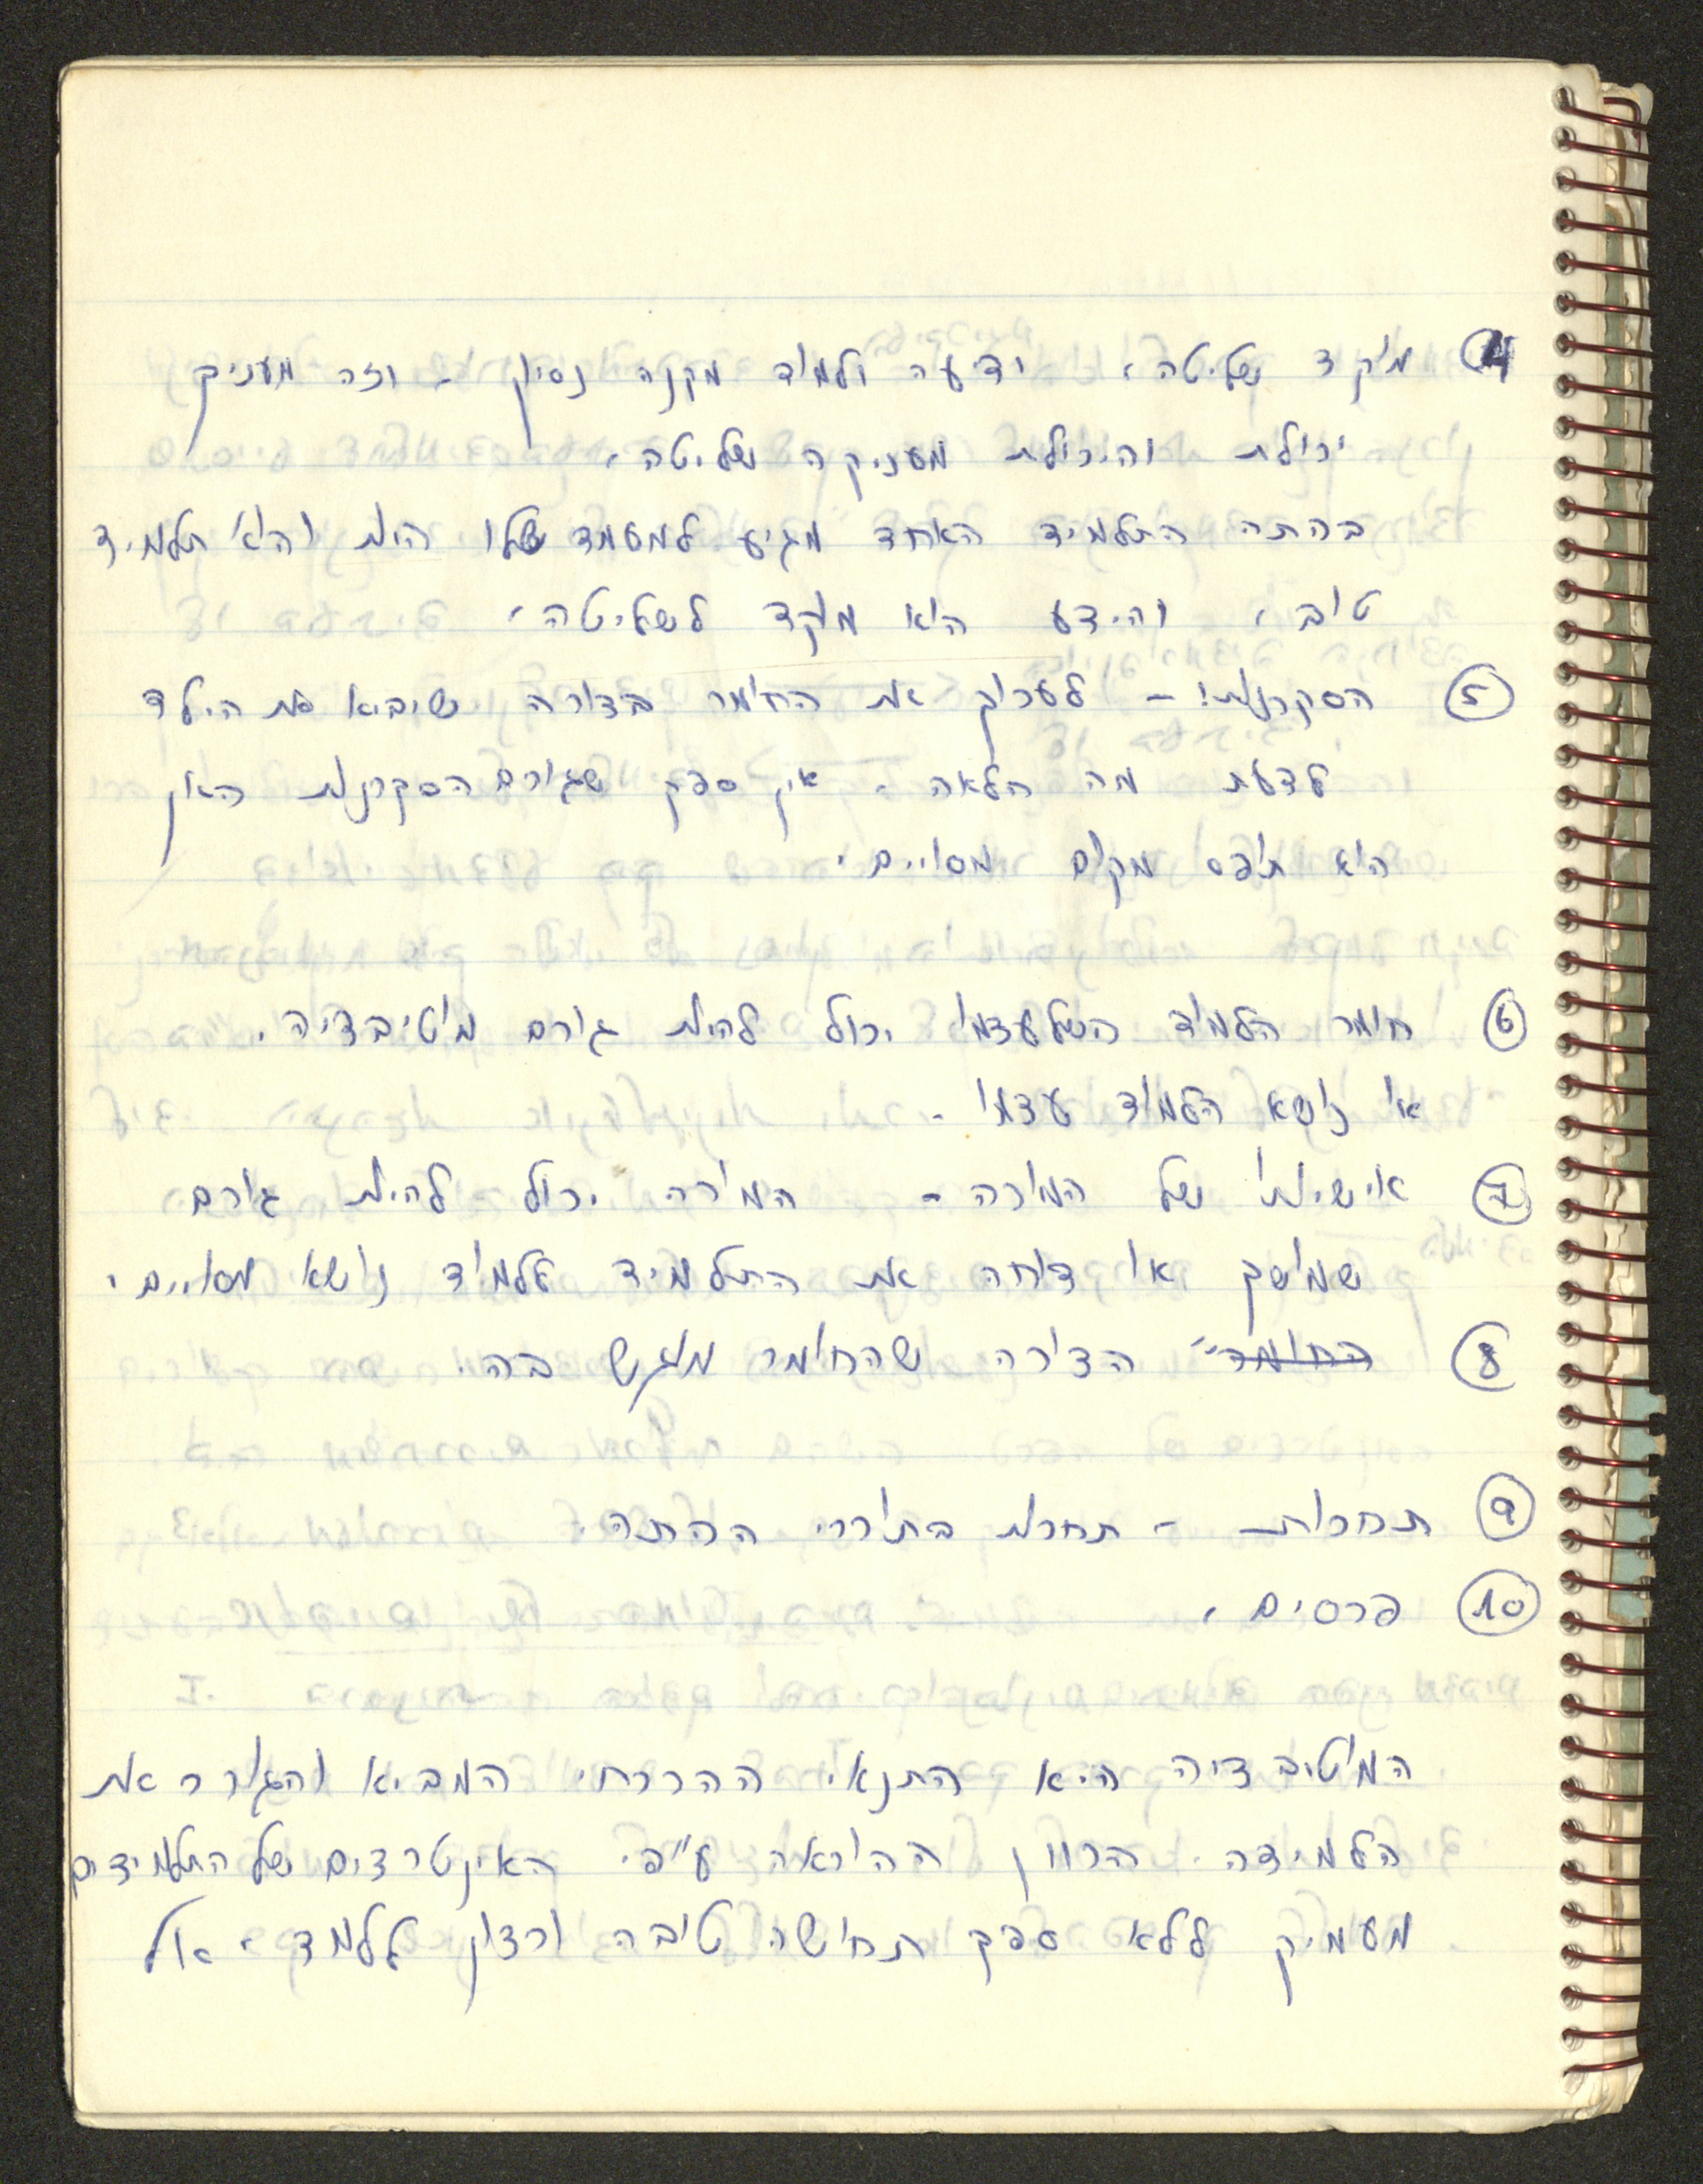 ④ מוקד שליטה, ידיעה ולמוד מקנה נסיון - וזה מעניק
יכולת והיכולת מעניקה שליטה.
בכתה התלמיד האחד מגיע למעמד שלו היות והוא תלמיד
טוב, והידע הוא מוקד לשליטה,
⑤ הסקרנות! - לערוך את החומר בצורה שיביא את הילד
לדעת מה הלאה. אין ספק שגורם הסקרנות כאן
הוא תופס מקום מסויים.
⑥ חומר הלמוד כשלעצמו יכול להיות גורם מוטיבציה.
או נושא הלמוד עצמו -
⑦ אישיותו של המורה - המורה יכול להיות גורם
שמושך או דוחה את התלמיד ללמוד נושא מסויים.
⑧ הצורה שהחומר מוגש בה.
⑨ תחרות - תחרות בתוככי הכתה.
⑩ פרסים.
המוטיבציה היא התנאי ההכרחי המביא והגורר את
הלמידה. הכוון ההוראה עפ"י האינטרצים של התלמידים
מעמיק ללא ספק תחושה טובה ורצון ללמוד, אולי